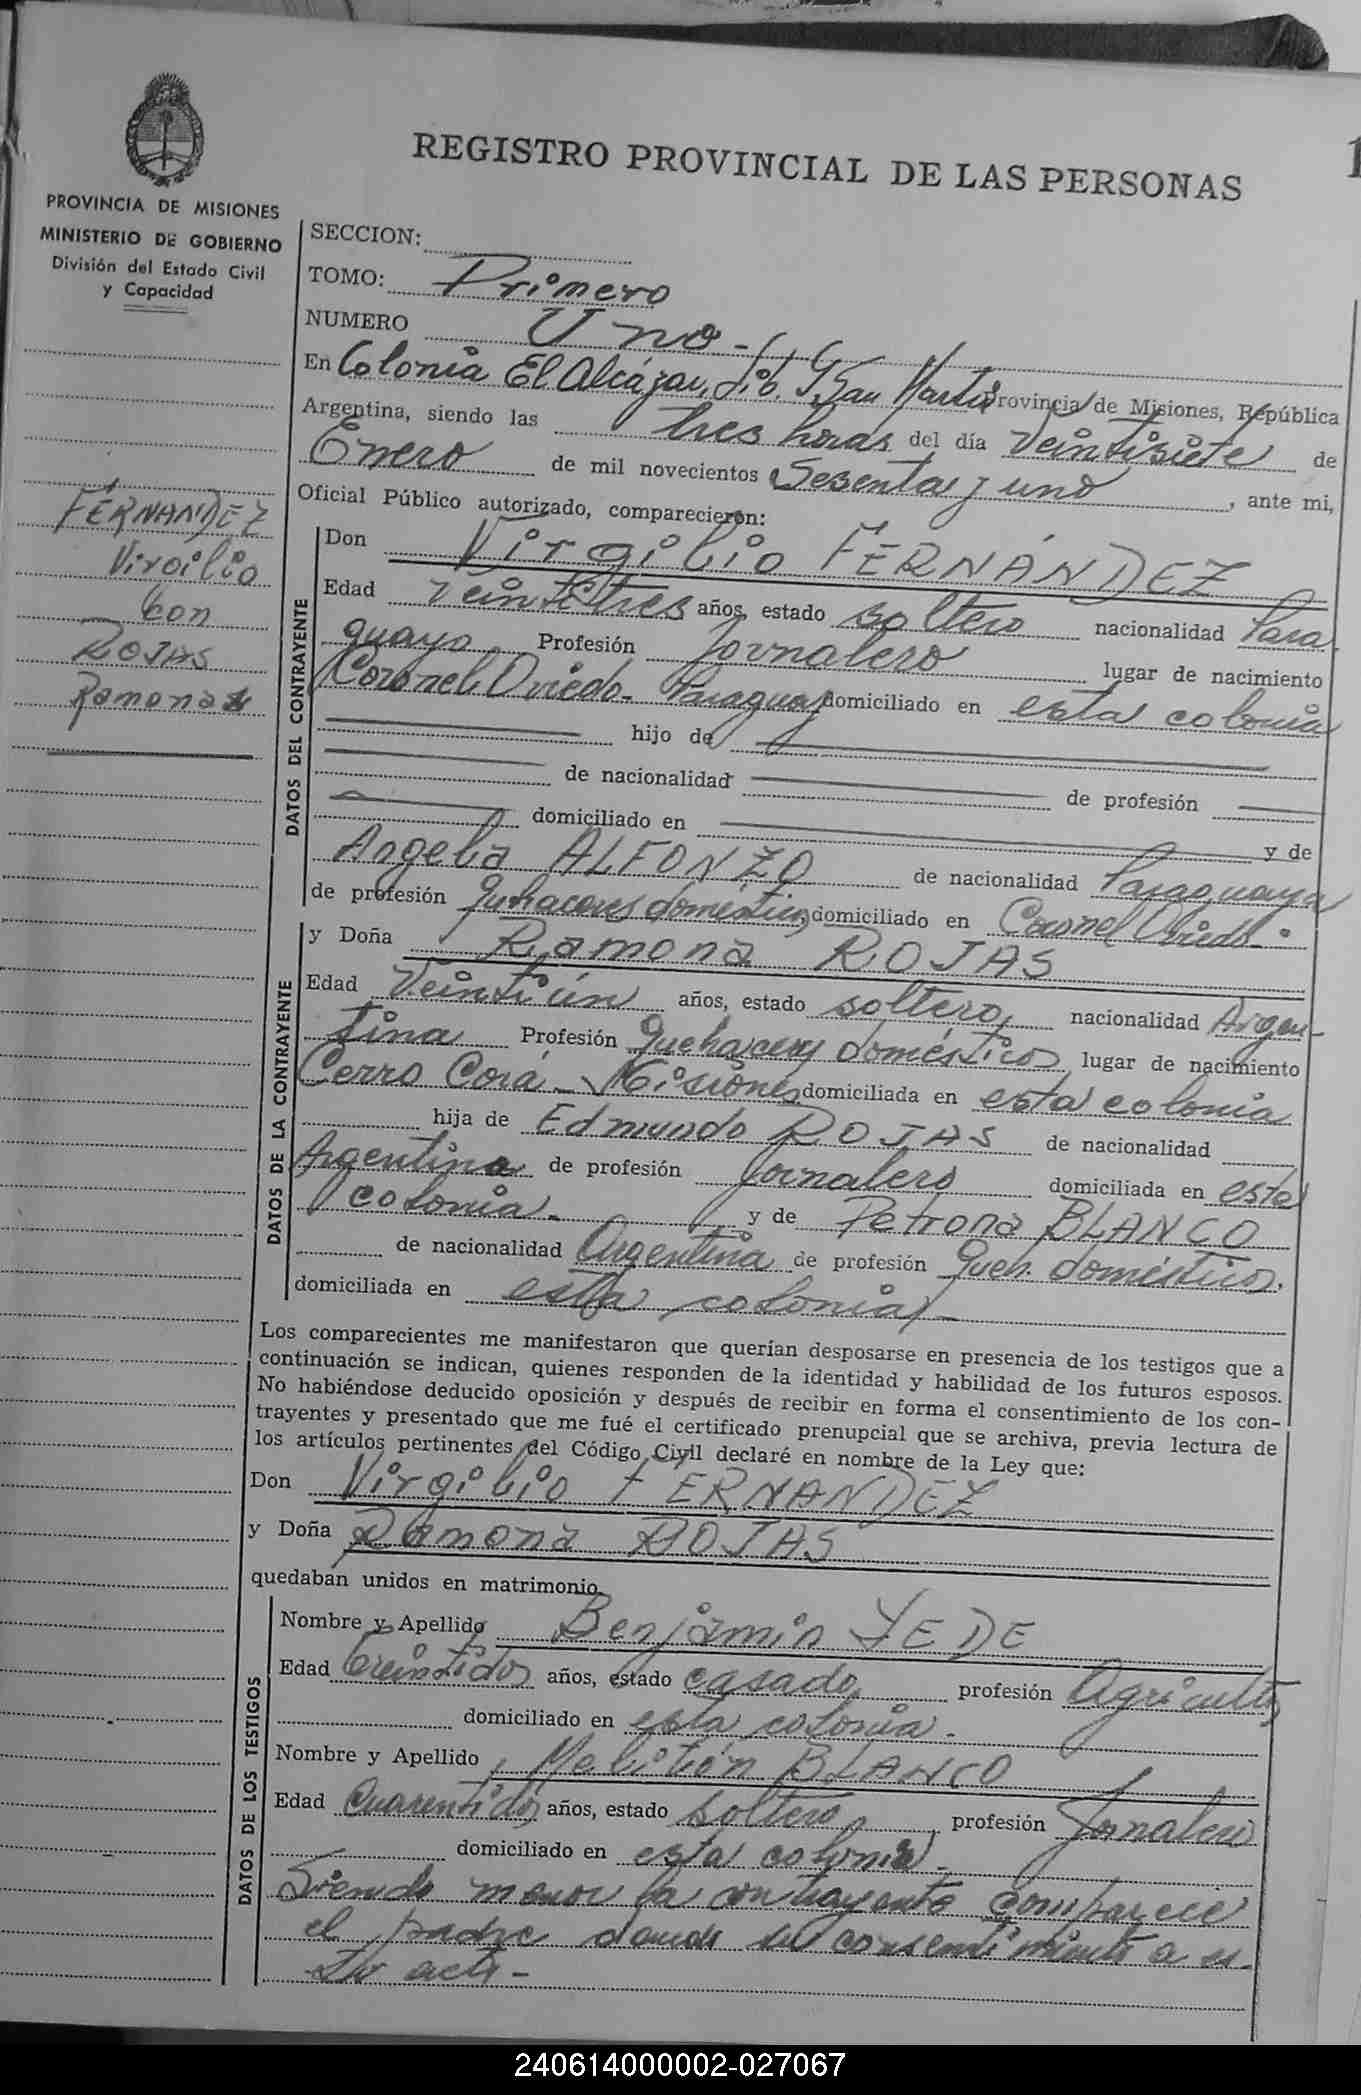 REGISTRO PROVINCIAL DE LAS PERSONAS
1
PROVINCIA DE MISIONES
MINISTERIO DE GOBIERNO
División del Estado Civil
y Capacidad
FERNANDEZ
Virgilio
con
ROJAS
Ramona
SECCION:
TOMO: Primero
NUMERO Uno.-
En Colonia El Alcázar, Lib. G. San Martín Provincia de Misiones, República
Argentina, siendo las tres horas del día Veintisiete de
Enero de mil novecientos Sesenta y uno, ante mi,
Oficial Público autorizado, comparecieron:
DATOS DEL CONTRAYENTE
Don Virgilio FERNÁNDEZ
Edad Veintitres años, estado soltero nacionalidad Para
guayo Profesión Jornalero lugar de nacimiento
Coronel Oviedo- Paraguay domiciliado en esta colonia
hijo de
de nacionalidad de profesión
domiciliado en y de
Angela ALFONZO de nacionalidad Paraguaya
de profesión Quehaceres domésticos, domiciliado en Coronel Oviedo-
DATOS DE LA CONTRAYENTE
y Doña Ramona ROJAS
Edad Veintiún años, estado soltero, nacionalidad Argen-
tina Profesión Quehaceres domésticos lugar de nacimiento
Cerro Corá - Misiones domiciliada en esta colonia
hija de Edmundo ROJAS de nacionalidad
Argentina de profesión Jornalero domiciliada en esta
colonia.- y de Petrona BLANCO
de nacionalidad Argentina de profesión Queh. domésticos.
domiciliada en esta colonia-
Los comparecientes me manifestaron que querían desposarse en presencia de los testigos que a
continuación se indican, quienes responden de la identidad y habilidad de los futuros esposos.
No habiéndose deducido oposición y después de recibir en forma el consentimiento de los con-
trayentes y presentado que me fué el certificado prenupcial que se archiva, previa lectura de
los artículos pertinentes del Código Civil declaré en nombre de la Ley que:
Don Virgilio FERNANDEZ
y Doña Ramona ROJAS
quedaban unidos en matrimonio.
DATOS DE LOS TESTIGOS
Nombre y Apellido Benjamín YEDE
Edad treintidos años, estado casado profesión Agricultor
domiciliado en esta colonia.
Nombre y Apellido Melitión BLANCO
Edad Cuarentidos años, estado soltero profesión Jornalero
domiciliado en esta colonia.
Siendo menor la contrayente comparece
el padre dando su consentimiento a es-
te acto-
240614000002-027067